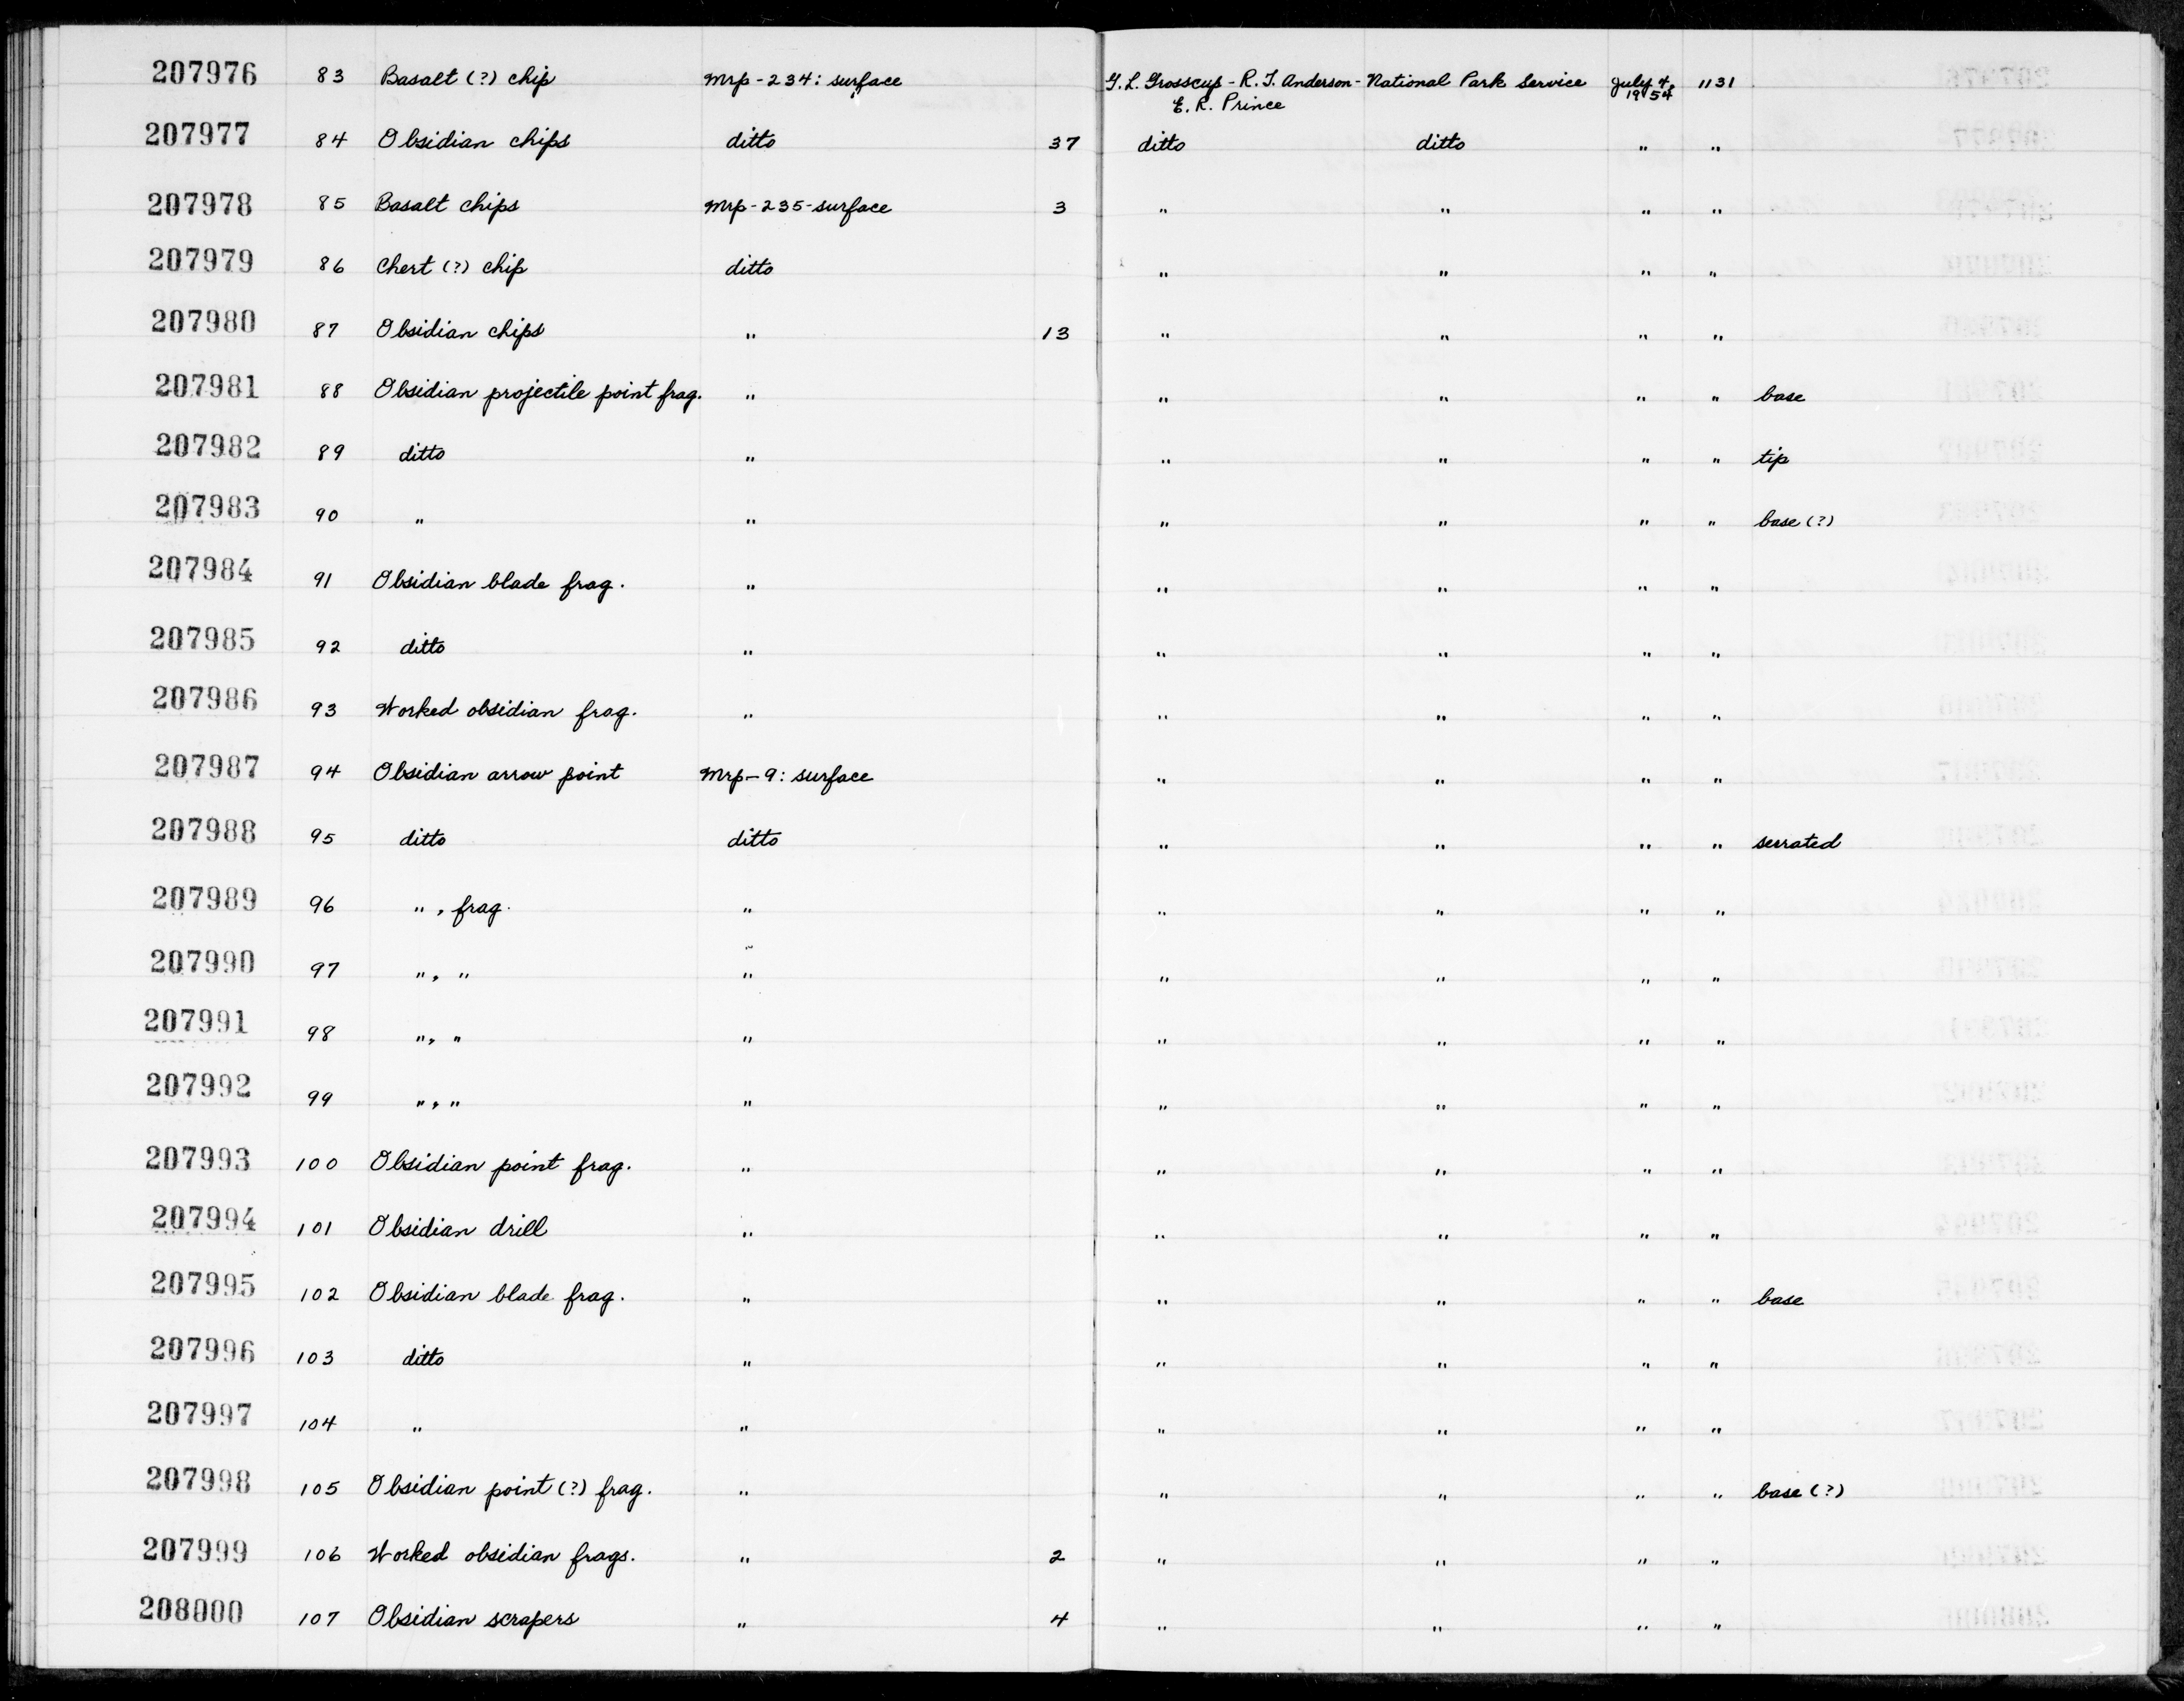 207976 83 Basalt (?) chip Mrp-234: surface G. L. Grosscup - R. T. Anderson - National Park Service July 4, 1131
E. R. Prince 1954
207977 84 Obsidian chips ditto 37 ditto ditto " "
207978 85 Basalt chips Mrp-235-surface 3 " " " "
207979 86 Chert (?) chip ditto " " " "
207980 87 Obsidian chips " 13 " " " "
207981 88 Obsidian projectile point frag. " " " " " base
207982 89 ditto " " " " " tip
207983 90 " " " " " " base (?)
207984 91 Obsidian blade frag. " " " " "
207985 92 ditto " " " " "
207986 93 Worked obsidian frag. " " " " "
207987 94 Obsidian arrow point Mrp-9: surface " " " "
207988 95 ditto ditto " " " " serrated
207989 96 ", frag. " " " " "
207990 97 ", " " " " " "
207991 98 ", " " " " " "
207992 99 ", " " " " " "
207993 100 Obsidian point frag. " " " " "
207994 101 Obsidian drill " " " " "
207995 102 Obsidian blade frag. " " " " " base
207996 103 ditto " " " " "
207997 104 " " " " " "
207998 105 Obsidian point (?) frag. " " " " " base (?)
207999 106 Worked obsidian frags. " 2 " " " "
208000 107 Obsidian scrapers " 4 " " " "